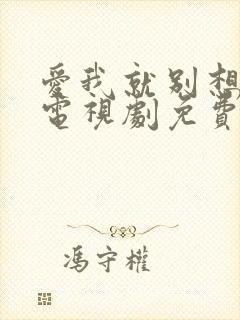 愛我就別想
電視劇免費
馮守權